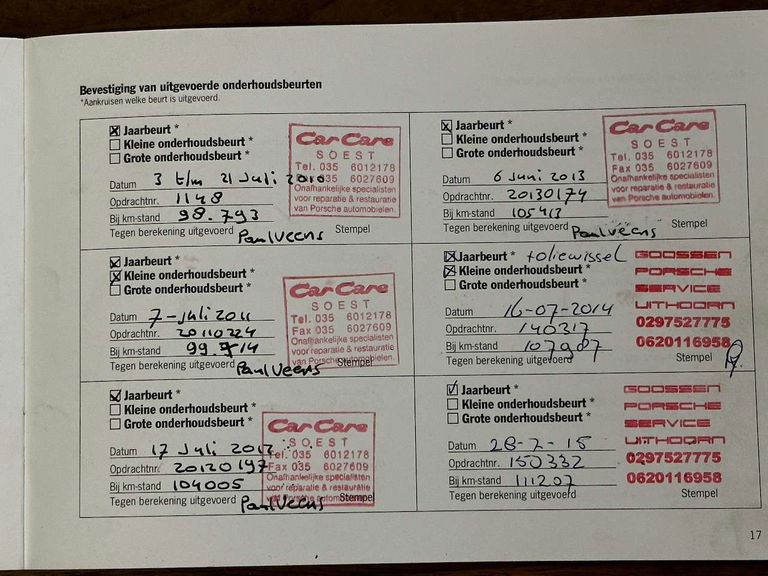 Bevestiging van uitgevoerde onderhoudsbeurten
*Aankruisen welke beurt is uitgevoerd.
Jaarbeurt *
Kleine onderhoudsbeurt *
Grote onderhoudsbeurt *
Datum 3 t/m 21 Juli 2010
Opdrachtnr. 1148
Bij km-stand 98.793
Tegen berekening uitgevoerd Paul Veens Stempel
Car Care
SOEST
Tel. 035 6012178
Fax 035 6027609
Onafhankelijke specialisten
voor reparatie & restauratie
van Porsche automobielen.
Jaarbeurt *
Kleine onderhoudsbeurt *
Grote onderhoudsbeurt *
Datum 6 Juni 2013
Opdrachtnr. 20130174
Bij km-stand 105413
Tegen berekening uitgevoerd Paul Veens Stempel
Car Care
SOEST
Tel. 035 6012178
Fax 035 6027609
Onafhankelijke specialisten
voor reparatie & restauratie
van Porsche automobielen.
Jaarbeurt *
Kleine onderhoudsbeurt *
Grote onderhoudsbeurt *
Datum 7-Juli 2011
Opdrachtnr. 20110224
Bij km-stand 99.714
Tegen berekening uitgevoerd Paul Veens Stempel
Car Care
SOEST
Tel. 035 6012178
Fax 035 6027609
Onafhankelijke specialisten
voor reparatie & restauratie
van Porsche automobielen.
Jaarbeurt * + oliewissel
Kleine onderhoudsbeurt *
Grote onderhoudsbeurt *
Datum 16-07-2014
Opdrachtnr. 140317
Bij km-stand 107907
Tegen berekening uitgevoerd Stempel
GOOSSEN
PORSCHE
SERVICE
UITHOORN
0297527775
0620116958
Jaarbeurt *
Kleine onderhoudsbeurt *
Grote onderhoudsbeurt *
Datum 17 Juli 2012
Opdrachtnr. 20120197
Bij km-stand 104005
Tegen berekening uitgevoerd Paul Veens Stempel
Car Care
SOEST
Tel. 035 6012178
Fax 035 6027609
Onafhankelijke specialisten
voor reparatie & restauratie
van Porsche automobielen.
Jaarbeurt *
Kleine onderhoudsbeurt *
Grote onderhoudsbeurt *
Datum 28-7-15
Opdrachtnr. 150332
Bij km-stand 111207
Tegen berekening uitgevoerd Stempel
GOOSSEN
PORSCHE
SERVICE
UITHOORN
0297527775
0620116958
17